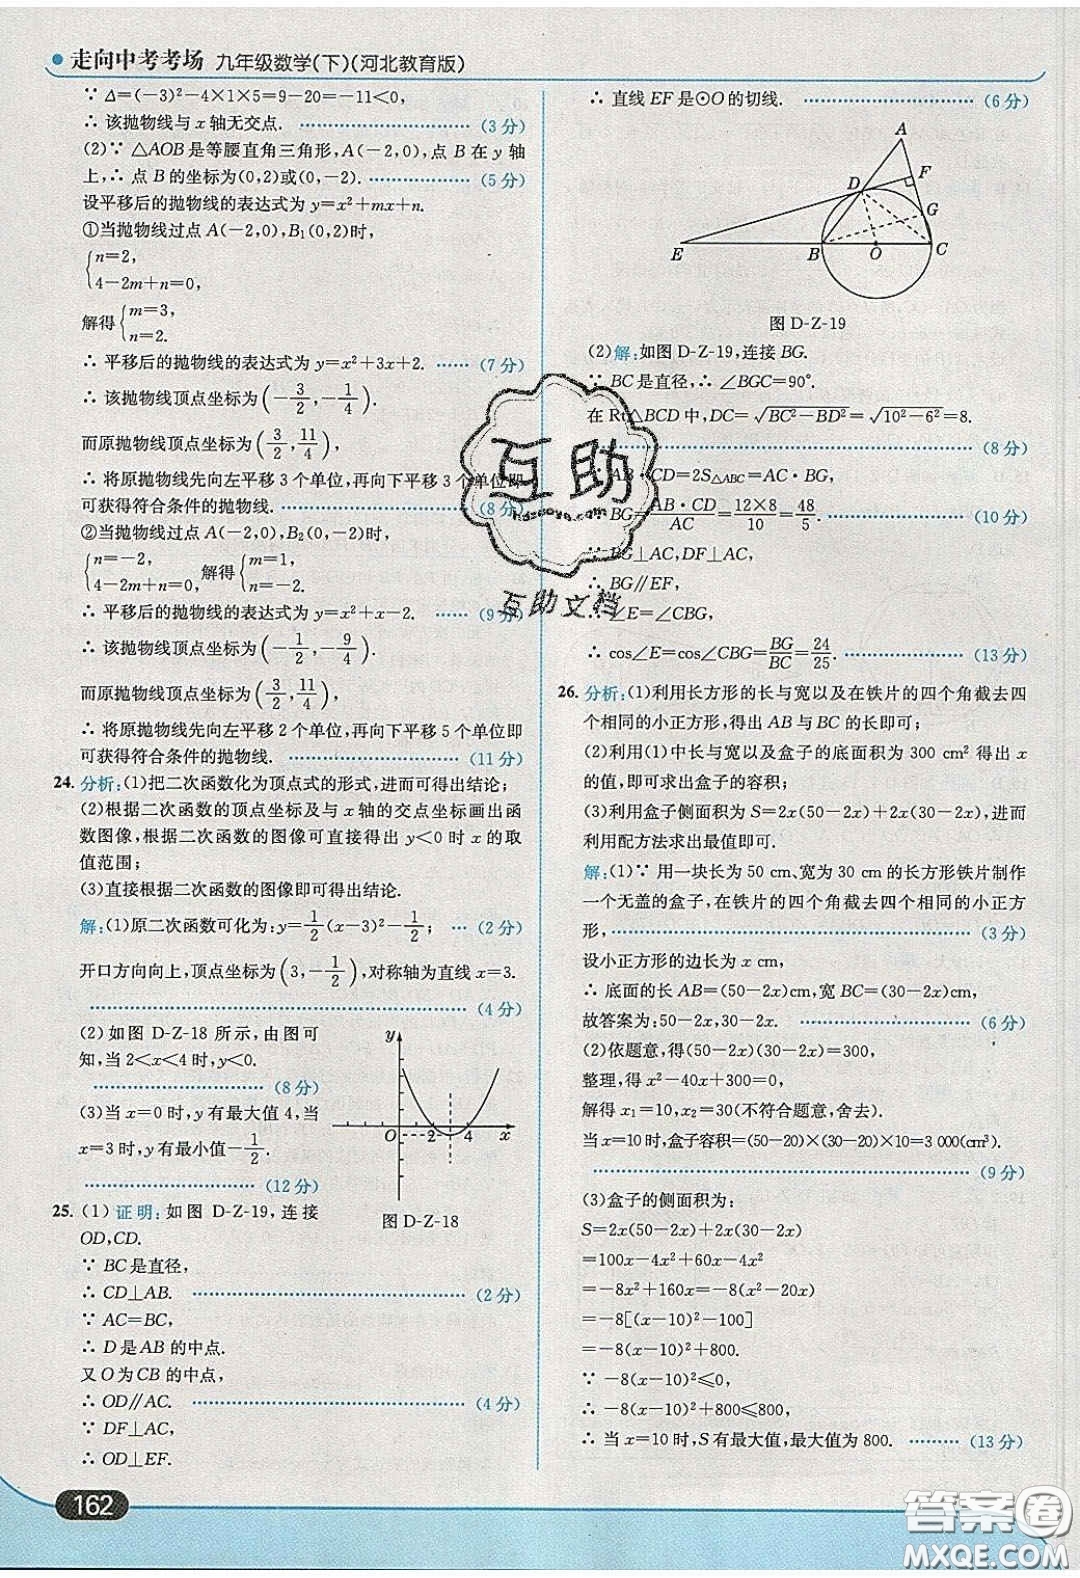 走向中考考场 九年级数学(下)(河北教育版)
∵ Δ=(-3)²-4×1×5=9-20=-11<0,
∴ 该抛物线与 x 轴无交点. (3 分)
(2)∵ △AOB是等腰直角三角形,A(-2,0),点 B 在 y 轴
上,∴ 点 B 的坐标为(0,2)或(0,-2). (5 分)
设平移后的抛物线的表达式为 y=x²+mx+n.
①当抛物线过点 A(-2,0),B₁(0,2)时,
{n=2,
4-2m+n=0,
解得{m=3,
n=2.
∴ 平移后的抛物线的表达式为 y=x²+3x+2. (7 分)
∴ 该抛物线顶点坐标为(-3/2,-1/4).
而原抛物线顶点坐标为(3/2,11/4),
∴ 将原抛物线先向左平移 3 个单位,再向下平移 3 个单位即
可获得符合条件的抛物线. (8 分)
②当抛物线过点 A(-2,0),B₂(0,-2)时,
{n=-2,
4-2m+n=0, 解得{m=1,
n=-2.
∴ 平移后的抛物线的表达式为 y=x²+x-2. (9 分)
∴ 该抛物线顶点坐标为(-1/2,-9/4).
而原抛物线顶点坐标为(3/2,11/4),
∴ 将原抛物线先向左平移 2 个单位,再向下平移 5 个单位即
可获得符合条件的抛物线. (11 分)
24. 分析:(1)把二次函数化为顶点式的形式,进而可得出结论;
(2)根据二次函数的顶点坐标及与 x 轴的交点坐标画出函
数图像,根据二次函数的图像可直接得出 y<0 时 x 的取
值范围;
(3)直接根据二次函数的图像即可得出结论.
解:(1)原二次函数可化为:y=1/2(x-3)²-1/2; (2 分)
开口方向向上,顶点坐标为(3,-1/2),对称轴为直线 x=3.
(4 分)
(2)如图 D-Z-18 所示,由图可
知,当 2<x<4 时,y<0.
(8 分)
(3)当 x=0 时,y 有最大值 4,当
x=3 时,y 有最小值-1/2.
(12 分)
y
O 2 4 x
图 D-Z-18
25. (1)证明:如图 D-Z-19,连接
OD,CD.
∵ BC 是直径,
∴ CD⊥AB. (2 分)
∵ AC=BC,
∴ D 是 AB 的中点.
又 O 为 CB 的中点,
∴ OD∥AC. (4 分)
∵ DF⊥AC,
∴ OD⊥EF.
162
∴ 直线 EF 是⊙O 的切线. (6 分)
A
F
D
G
E B O C
图 D-Z-19
(2)解:如图 D-Z-19,连接 BG.
∵ BC 是直径,∴ ∠BGC=90°.
在 Rt△BCD 中,DC=√(BC²-BD²)=√(10²-6²)=8.
(8 分)
∵ AB·CD=2S△ABC=AC·BG,
∴ BG=AB·CD/AC=12×8/10=48/5. (10 分)
∵ BG⊥AC,DF⊥AC,
∴ BG∥EF,
∴ ∠E=∠CBG,
∴ cos∠E=cos∠CBG=BG/BC=24/25. (13 分)
26. 分析:(1)利用长方形的长与宽以及在铁片的四个角截去四
个相同的小正方形,得出 AB 与 BC 的长即可;
(2)利用(1)中长与宽以及盒子的底面积为 300 cm² 得出 x
的值,即可求出盒子的容积;
(3)利用盒子侧面积为 S=2x(50-2x)+2x(30-2x),进而
利用配方法求出最值即可.
解:(1)∵ 用一块长为 50 cm、宽为 30 cm 的长方形铁片制作
一个无盖的盒子,在铁片的四个角截去四个相同的小正方
形, (3 分)
设小正方形的边长为 x cm,
∴ 底面的长 AB=(50-2x)cm,宽 BC=(30-2x)cm,
故答案为:50-2x,30-2x. (6 分)
(2)依题意,得(50-2x)(30-2x)=300,
整理,得 x²-40x+300=0,
解得 x₁=10,x₂=30(不符合题意,舍去).
当 x=10 时,盒子容积=(50-20)×(30-20)×10=3 000(cm³).
(9 分)
(3)盒子的侧面积为:
S=2x(50-2x)+2x(30-2x)
=100x-4x²+60x-4x²
=-8x²+160x=-8(x²-20x)
=-8[(x-10)²-100]
=-8(x-10)²+800.
∵ -8(x-10)²≤0,
∴ -8(x-10)²+800≤800,
∴ 当 x=10 时,S 有最大值,最大值为 800. (13 分)
互助
hdzuoye.com
互助文档
答案圈
MXQE.COM